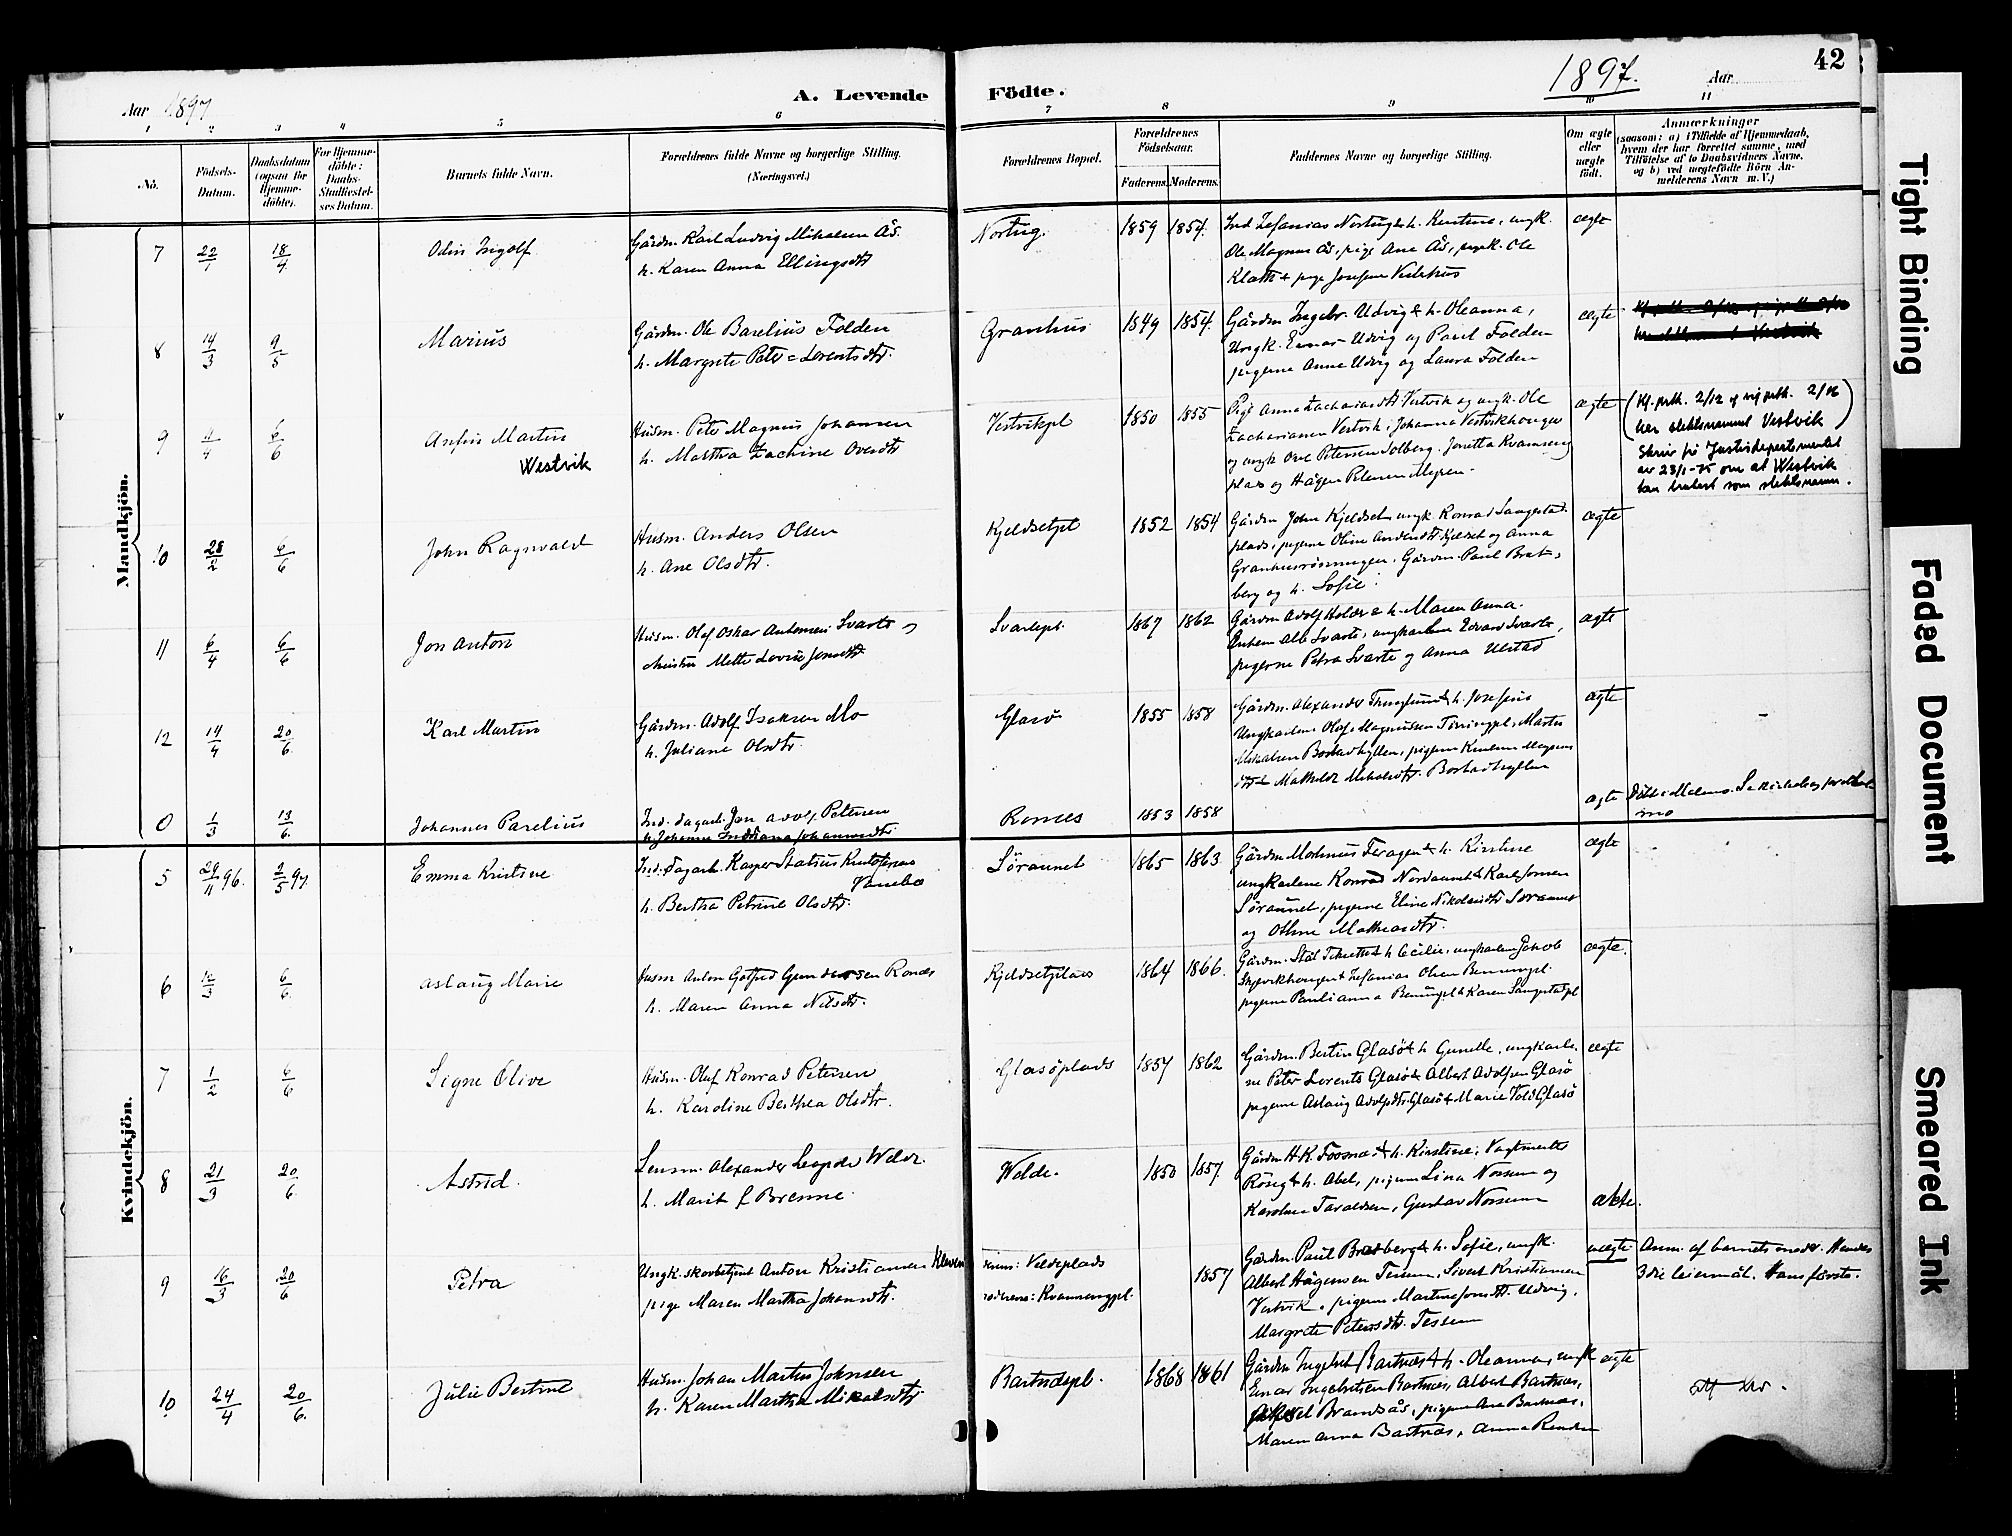 42
Aar 1897
A. Levende
Födte.
1897.
Aar
1 2 3 4 5 6 7 8 9 10 11
No.
Födsels-
Datum.
Daabsdatum
(ogsaa for
Hjemme-
döbte).
For Hjemme-
döbte:
Daabs-
Stadfæstel-
ses Datum.
Barnets fulde Navn.
Forældrenes fulde Navne og borgerlige Stilling.
(Næringsvei.)
Forældrenes Bopæl.
Forældrenes
Födselsaar.
Faderens. Moderens.
Faddernes Navne og borgerlige Stilling.
Om ægte
eller
uægte
födt.
Anmærkninger
(saasom: a) i Tilfælde af Hjemmedaab,
hvem der har forrettet samme, med
Tilföielse af to Daabsvidners Navne,
og b) ved uægtefödte Börn An-
melderens Navn m. V.)
Mandkjön.
7 22/1 18/4 Odin Ingolf
Gårdm. Karl Ludvig Mikalsen Ås.
h. Karen Anna Ellingsdtr
Nortug. 1859 1854.
Ind. Zefanias Nortug & h. Kirstine, ungk.
Ole Magnus Ås, pige Ane Ås, ungk. Ole
Klath & pige Josefine Vestehus
ægte
8 14/3 9/5 Marius
Gårdm. Ole Barelius Folden
h. Margrete Peter=Lorentsdtr.
Granhus 1849 1854.
Gårdm Ingebr. Udvig & h. Oleanna,
Ungk. Einar Udvig og Paul Folden
pigerne Anne Udvig og Laura Folden
ægte
9 4/4 6/6 Arfin Martin
Westvik
Husm. Peter Magnus Johansen
h. Martha Zachrine Oversdtr
Vestvikpl 1850 1855
Pige Anna Zachariasdtr Vestvik og ungk. Ole
Zachariassen Vestvik, Johanna Vestvikhaugen
og ungk Ove Petersen Solberg. Jonetta Kvamseng
plads og Hågen Petersen Myren.
ægte
(Kf. prtk. 2/12 og vig prtk. 2/06
har slektsnavnet Vestvik)
Skriv frå Justisdepartementet
av 23/1-75 om at Westvik
kan brukast som slektsnamn.
10 28/2 6/6 John Ragnvald
Husm. Anders Olsen
h. Ane Olsdtr.
Kjeldsetpl 1852 1854
Gårdm John Kjeldset, ungk Konrad Saugestad-
plads, pigerne Oline Andersdtr Kjeldset og Anna
Granhusrönningen, Gårdm. Paul Brat-
berg og h. Sofie.
ægte
11 6/4 6/6 Jon Anton
Husm. Olaf Oskar Antonsen Svarte og
hustru Mette Lovise Jonsdtr.
Svartepl. 1867 1862
Gårdm Adolf Holde & h. Maren Anna.
Enkem Alb Svarte, ungkarlene Edvard Svarte,
pigerne Petra Svarte og Anna Ulstad
ægte
12 14/4 20/6. Karl Martin
Gårdm. Adolf Isaksen Mo
h. Juliane Olsdtr.
Glasö 1855 1858
Gårdm. Alexander & h. Josefine
Ungkarlene Olaf Magnussen
Mikalsen Bostadhyllen, pigerne
Mathilde Mikalsdtr. Bostadhyllen
ægte
0 1/3 13/6. Johannes Parelius
Ind. dagarb. Jon Adolf Petersen
h. Johanna Indiana Johannesdtr.
Romees 1853 1858
ægte
Kvindekjön.
5 29/11 96. 2/5 97. Emma Kristine
Ind. Dagarb. Kasper Statius Kristofersen
Vanebo
h. Bertha Petrine Olsdtr.
Söraunet 1865 1863.
Gårdm Mortinus Feragen & h. Kirstine
ungkarlene Konrad Nordaunet & Karl Jonsen
Söraunet, pigerne Eline Nikolaisdtr Söraunet
og Othine Mathiasdtr.
ægte
6 12/3 6/6. Aslaug Marie
Husm Anton Gotfred Gundersen Rones
h. Maren Anna Nilsdtr.
Kjeldsetplads 1864 1866.
Gårdm. & h Cecilie, ungkarlene Jakob
& Zefanias Olsen
pigerne Paulianna & Karen Saugestadpl
ægte.
7 1/2 6/6 Signe Olive
Husm. Oluf Konrad Petersen
h. Karoline Berthea Olsdtr.
Glasöplads 1857 1862
Gårdm. Bertin Glasö & h Gunelle, ungkarle-
ne Peter Lorents Glasö & Albert Adolfsen Glasö
pigerne Aslaug Adolfsdtr. Glasö & Marie Told Glasö
ægte
8 21/3 20/6. Astrid.
Lensm. Alexander Leopold Welde.
h. Marit f Brenne.
Welde. 1850 1857.
Gårdm H.K. Foosnæs & h. Kirstine, Vagtmester
Röseg & h. Abel, pigerne Lina Norsem og
Karoline Taraldsen, Gustav Norsem
ækte.
9 16/3 20/6 Petra
Ungk. skovbetjent Anton Kristiansen Kleven
pige Maren Martha Johansdtr.
Faderens: Veldeplads
Moderens: Kvamsengpl. 1857
Gårdm. Paul Bratberg & h. Sofie, ungk.
Albert Hågensen Tessem, Sivert Kristiansen
Vestvik, pigerne Martine Jonsdtr. Udvig,
Margrete Petersdtr. Tessem
uægte
Anm. af barnets moder. Hendes
3die leiermål. Hans förste.
10. 24/4 20/6. Julie Bertine
Husm. Johan Martin Johnsen
h. Karen Martha Mikalsdtr
Bartnespl. 1868 1861
Gårdm Ingebret Bartnes & h. Oleanna, ungk
Einar Ingebretsen Bartnes, Albert Bartnes,
Aksel Brandsås, pigerne Ane Bartnes,
Maren Anna Bartnes, Anna
ægte
Tight Binding
Faded Document
Smeared Ink